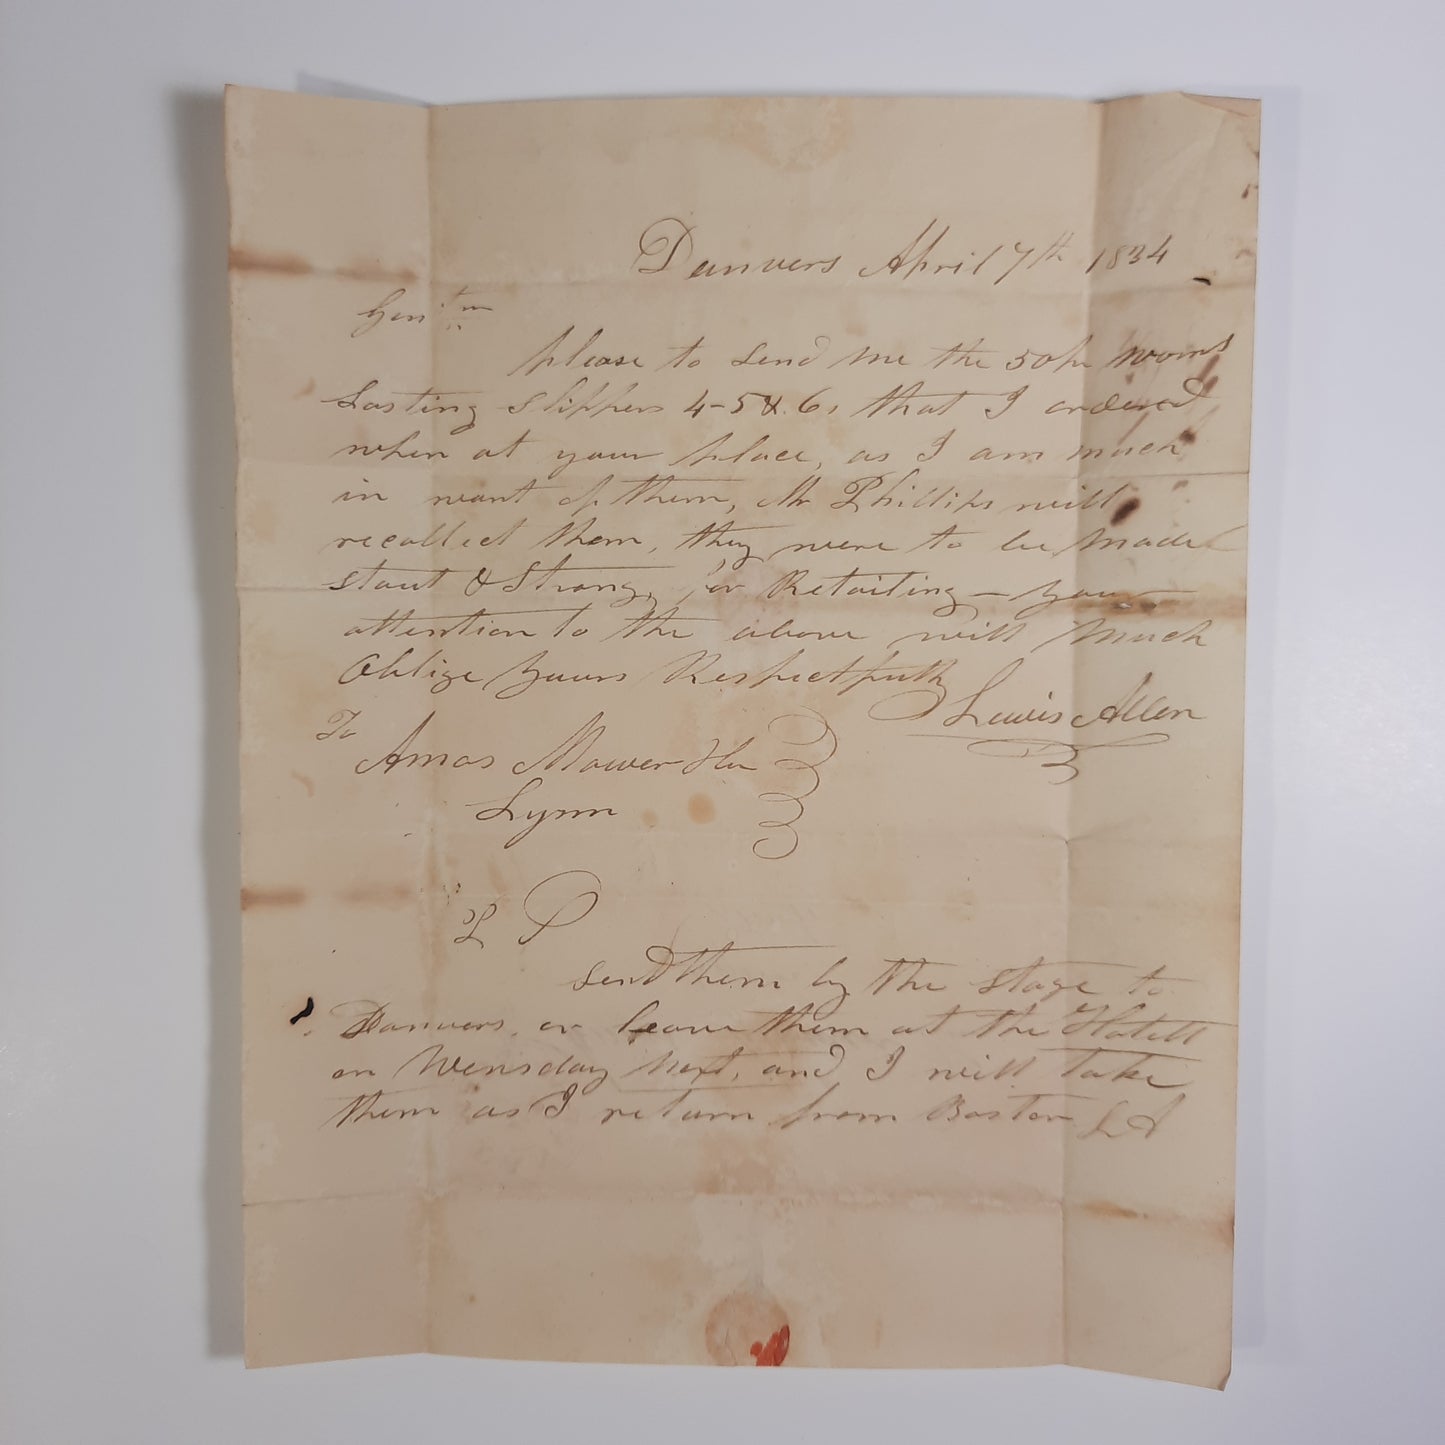 Danvers April 7th 1834
Gentmn
please to send me the 50 pr woms
Lasting Slippers 4-5 & 6, that I ordered
when at your place, as I am much
in want of them, Mr Phillips will
recollect them, they were to be made
stout & Strong, for Retailing — your
attention to the above will much
Oblige Yours Respectfully
Lewis Allen
To
Amos Mower
Lynn
send them by the stage to
Danvers, or leave them at the Hotell
on Wensday next, and I will take
them as I return from Boston L A